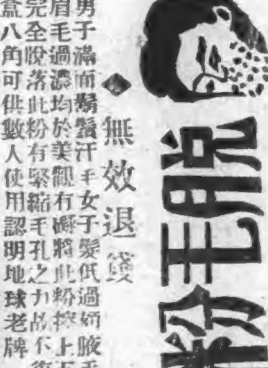 脫毛粉
無效退錢
男子滿面鬍鬚汗毛女子髮低過額腋毛
眉毛過濃均於美觀有礙將此粉擦上不
完全脫落此粉有緊縮毛孔之力故不復
盒八角可供數人使用認明地球老牌